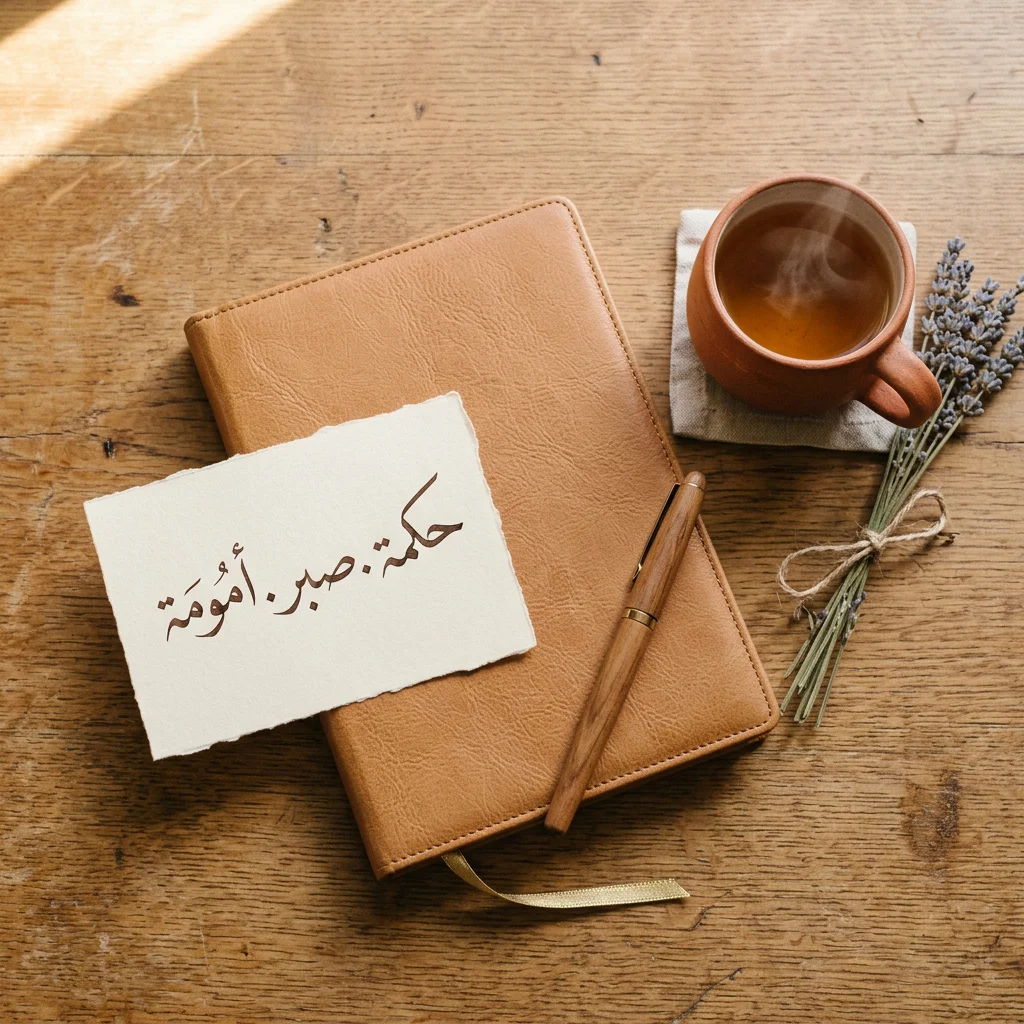 حكمة. صبر. أُمُومَة